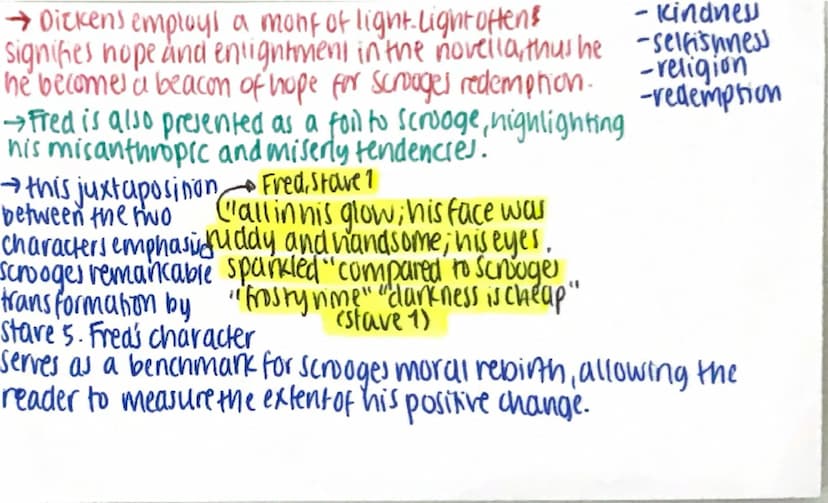 → Dickens employs a motif of light. Light often
signifies hope and enlightment in the novella, thus he
he becomes a beacon of hope for scrooges redemption.
- kindness
- selfishness
- religion
- redemption
→ Fred is also presented as a foil to scrooge, highlighting
his misanthropic and miserly tendencies.
→ Fred, stave 1
"all in his glow; his face was
ruddy and handsome; his eyes
sparkled" compared to scrooges
"frosty rime" "darkness is cheap"
(stave 1)
→ this juxtaposition
between the two
characters emphasis
scrooges remarkable
transformation by
stave 5. Fred's character
serves as a benchmark for scrooges moral rebirth, allowing the
reader to measure the extent of his positive change.